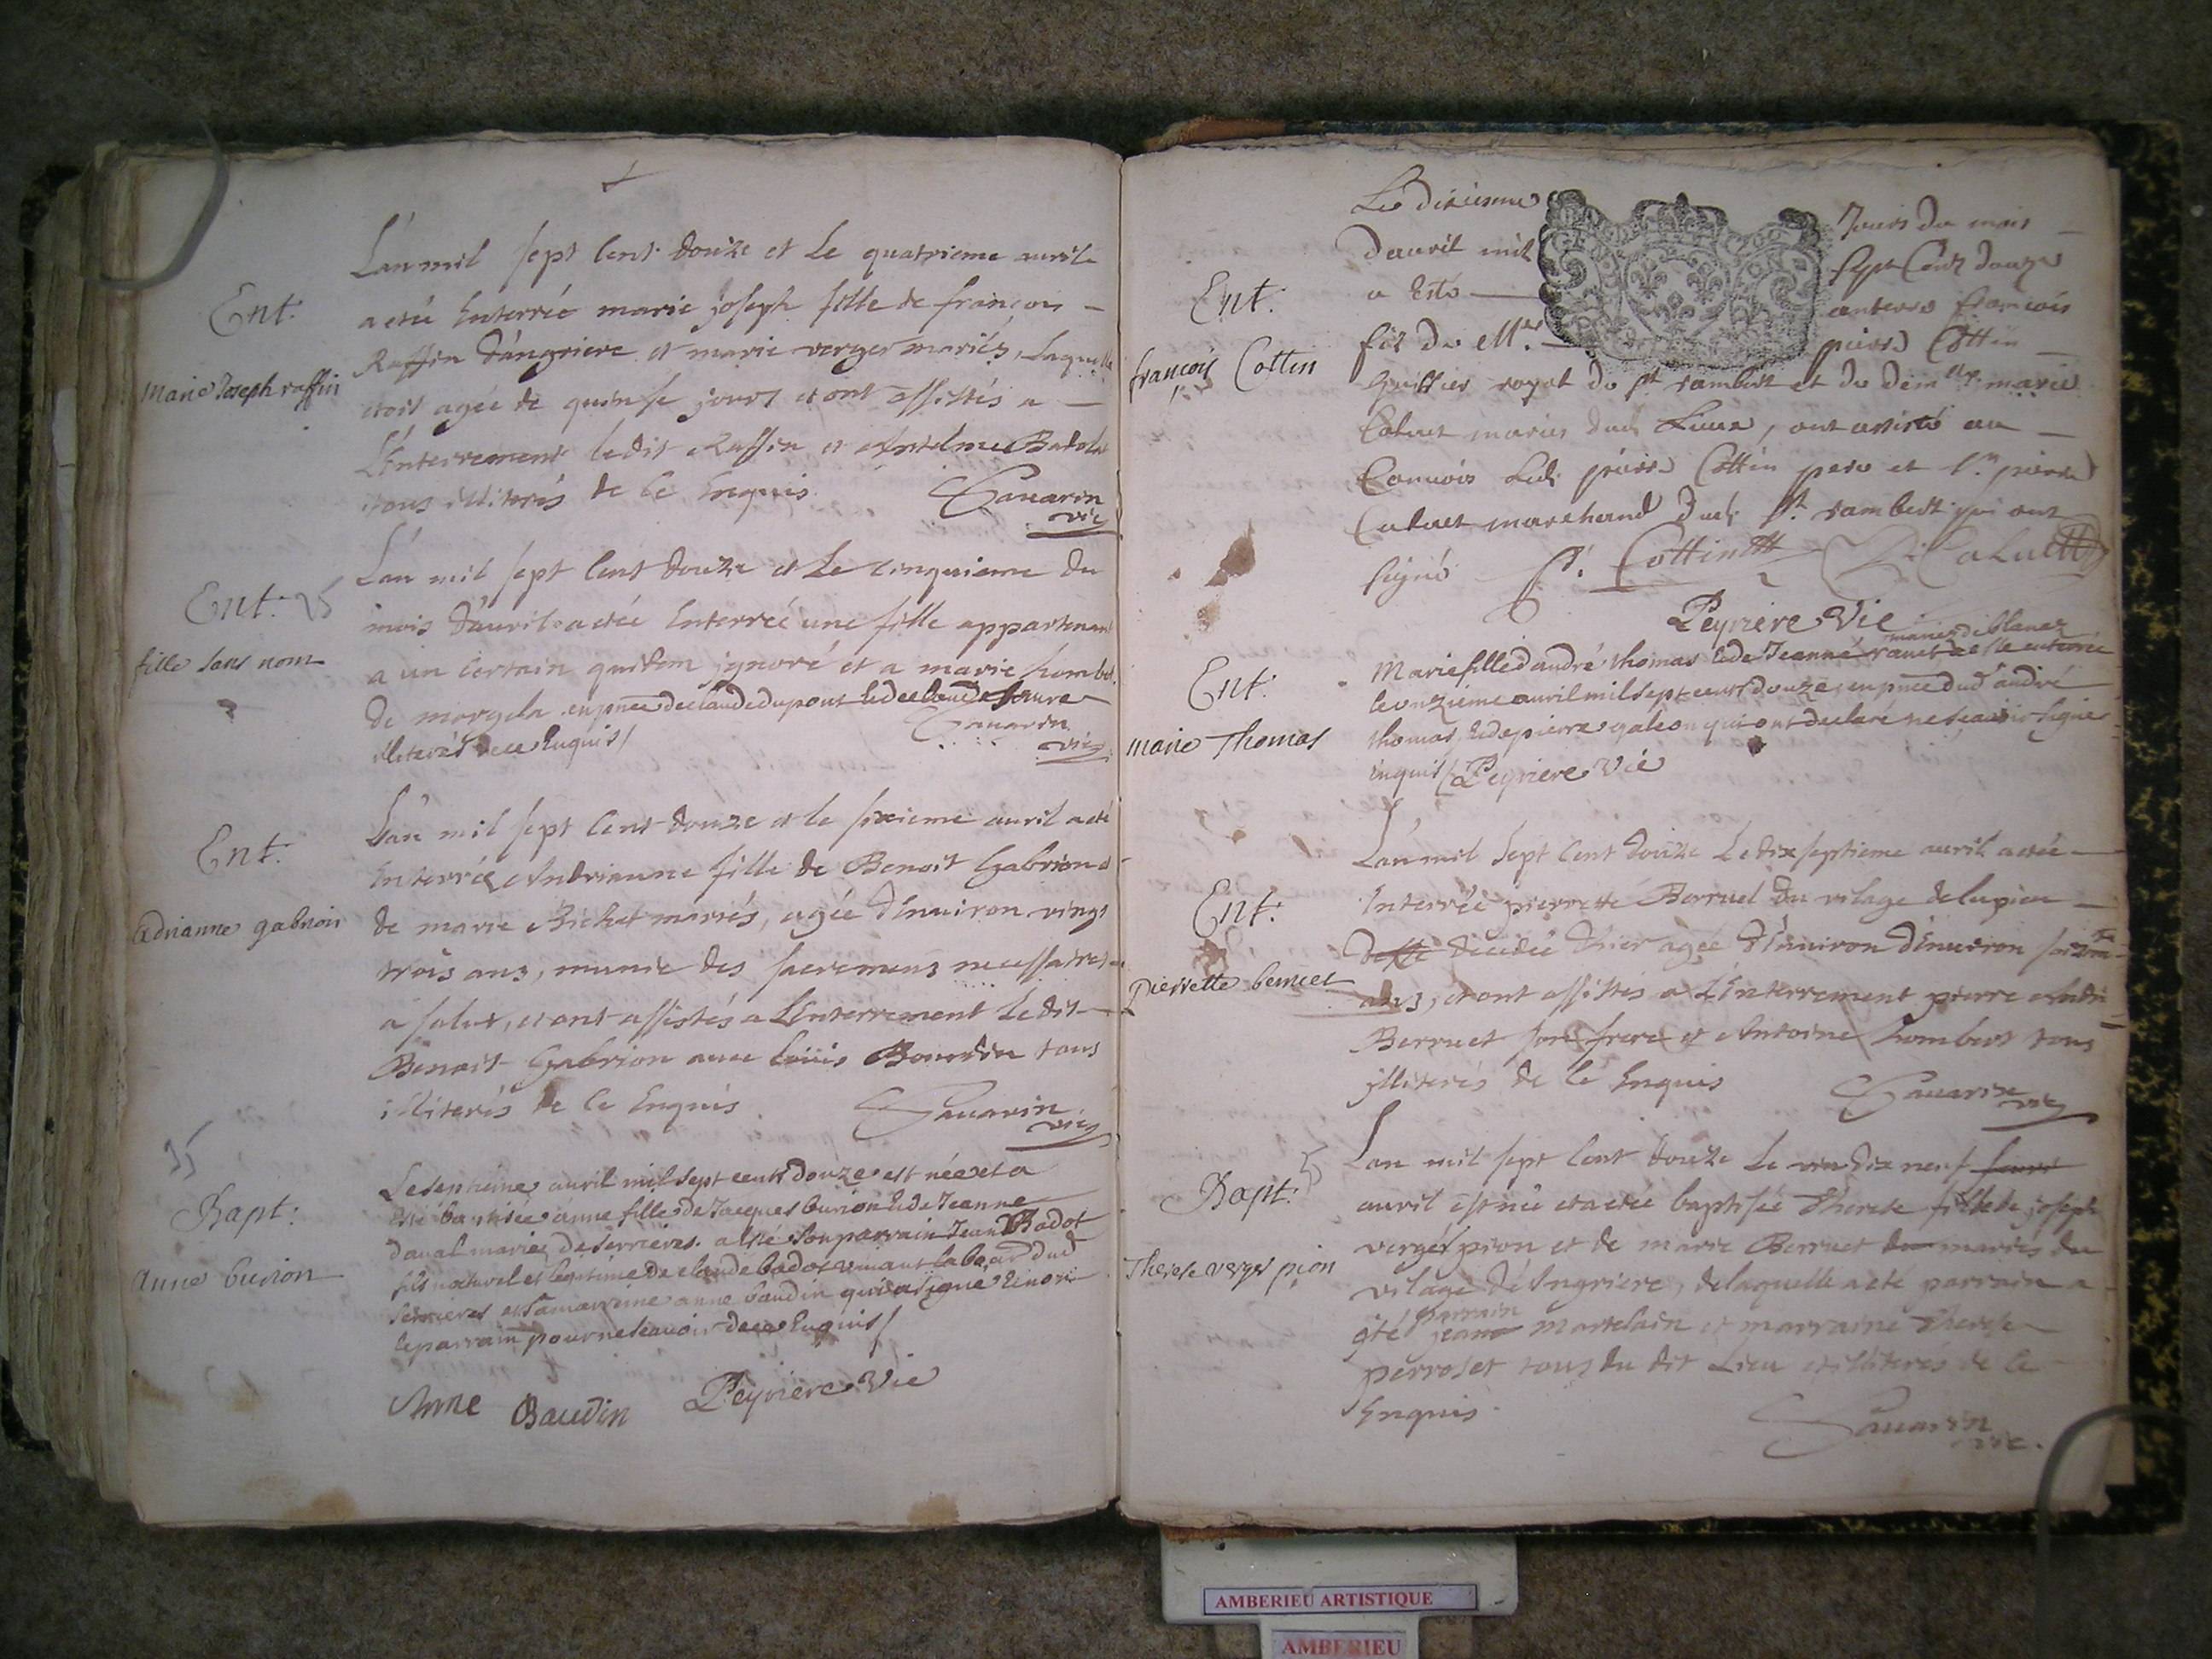 L'an mil sept cent douze et Le quatrieme avril
Ent.
a eté Enterrée marie joseph fille de francois
Raffin d'angriere et marie verger mariés, Laquelle
Marie Joseph raffin
etoit agée de quinse jours et ont assistés a
L'enterrement ledit Raffin et Antelme Badolat
tous illiterés de ce Enquis
Savarin
vic
L'an mil sept cent douze et Le cinquieme du
Ent:
mois d'avril a etée Enterrée une fille appartenant
fille sans nom
a un certain quidem jgnoré et a marie humbert
de morgela en pnce de claude dupont & de claude
illiterés de ce Enquis/
Savarin
vic
L'an mil sept cent douze et le sixieme avril a eté
Ent.
Enterrée Andrianne fille de Benoit Gabrion et
de marie Bichat mariés, agée d'Environ vingt
Adrianne gabrion
trois ans, munie des sacremens necessaires
a salut, et ont assistés a L'Enterrement Ledit
Benoit Gabrion avec Louis Bourdin tous
illiterés de ce Enquis
Savarin
vic
Le septieme avril mil sept cents douze est née et a
esté baptisée anne fille de Jacques burion & de Jeanne
Bapt:
daval mariez de serrieres. a esté son parrain Jean Badot
fils naturel et legitime de claude badot
anne burion
serrieres et sa marrenne anne baudin qui a signe & non
le parrain pour ne scavoir de ce Enquis/
Anne Baudin Peyriere Vic
Le dixieme Jours du mois
D'avril mil sept Cent douze
Ent.
a Esté enterré francois
fils de Mre. pierre Cottin
francois Cottin
huissier royal de st rambert et de demlle. marie
Calvet mariés dudt Lieux, ont assisté au
Convois Ledt pierre Cottin pere et Sr. pierre
Calvet marchand dudt st. rambert qui ont
signé P. Cottin P. Caluet
Peyriere Vic
mariez de blanaz
Marie fille d'andré thomas & de Jeanne ravet a esté enterrée
Ent.
le onzieme avril mil sept cents douze, en pnce dud andré
Marie Thomas
thomas, & de pierre galeon qui ont declaré ne scavoir signer
enquis/ Peyriere Vic
L'an mil sept cent douze Le dix septieme avril a etée
Ent.
Enterrée pierrette Berruet du vilage de lupieu
decedée d'hier agée d'Environ d'Environ
pierrette berruet
ans, et ont assistes a L'Enterrement pierre André
Berruet son frere et Antoine humbert tous
jlliterés de ce Enquis
Savarin
vic
L'an mil sept cent douze Le dix neuf
Bapt:
avril est née et a etée baptisée Therese fille de joseph
verger pion et de marie Berruet mariés du
Therese verger pion
vilage d'Angriere, de laquelle a eté parrain a
parrain
eté jean martelain et marraine Therese
perroset tous du dit Lieu et illiterés de ce
Enquis
Savarin
vic.
AMBERIEU ARTISTIQUE
AMBERIEU